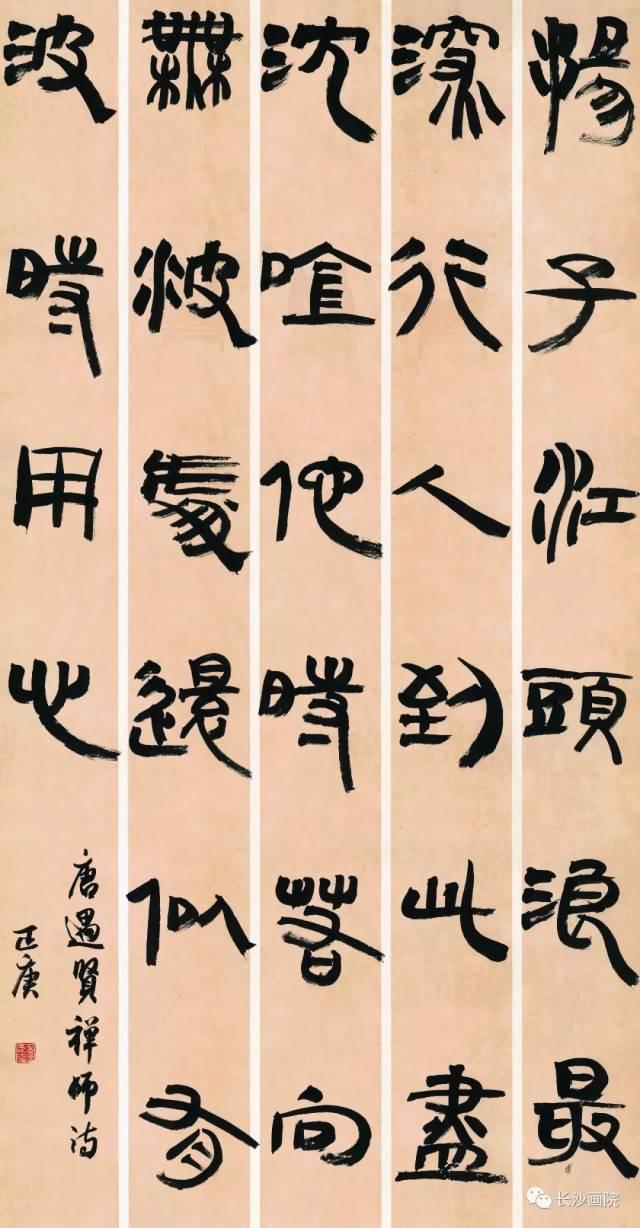 楊子江頭浪最
深行人到此盡
沈唫他時若向
無波處還似有
波時用心
唐遇賢禪師詩
正庚
长沙画院